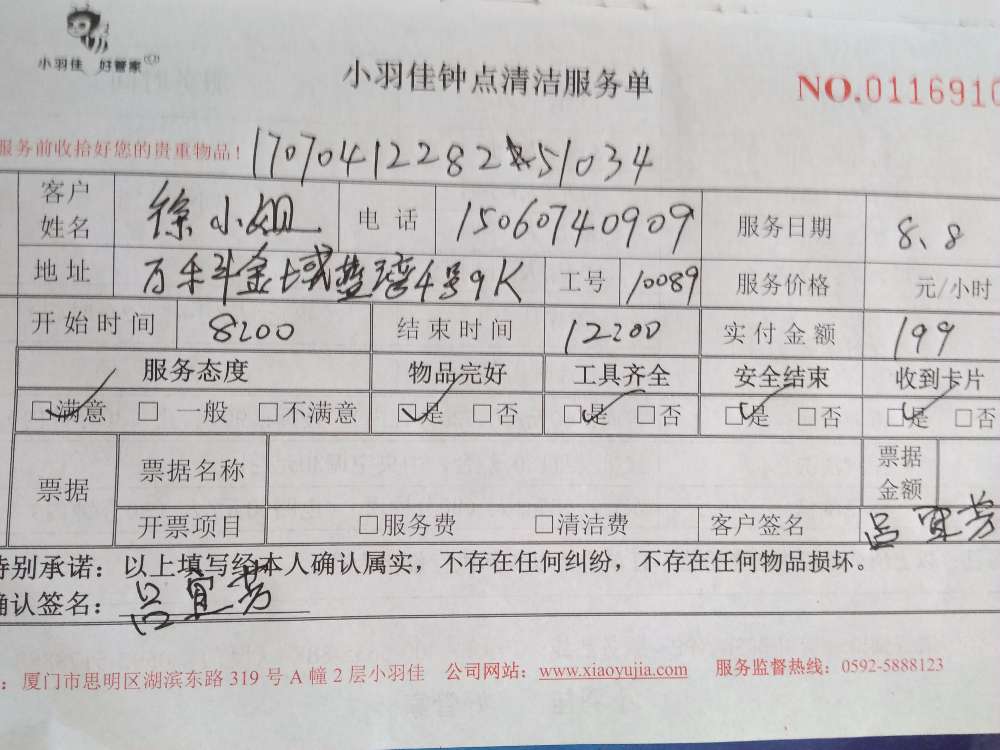 小羽佳 好管家
小羽佳钟点清洁服务单
NO.0116910
服务前收拾好您的贵重物品!
17070412282 51034
客户姓名 徐小姐 电话 15060740909 服务日期 8、8
地址 万科金域蓝湾4号9K 工号 10089 服务价格 元/小时
开始时间 8:00 结束时间 12:00 实付金额 199
服务态度 物品完好 工具齐全 安全结束 收到卡片
☑满意 □一般 □不满意 ☑是 □否 ☑是 □否 ☑是 □否 ☑是 □否
票据 票据名称 票据金额
开票项目 □服务费 □清洁费 客户签名 吕宜芳
特别承诺：以上填写经本人确认属实，不存在任何纠纷，不存在任何物品损坏。
确认签名：吕宜芳
：厦门市思明区湖滨东路 319 号 A 幢 2 层小羽佳 公司网站：www.xiaoyujia.com 服务监督热线：0592-5888123